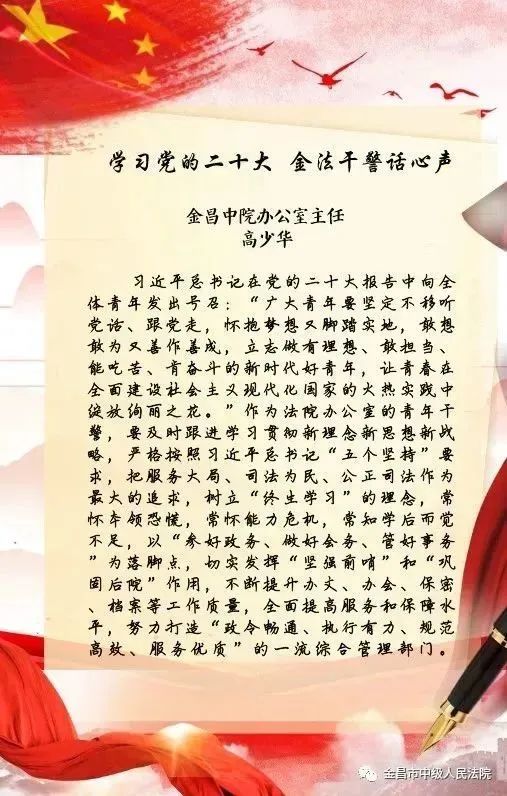 学习党的二十大 金法干警话心声
金昌中院办公室主任
高少华
习近平总书记在党的二十大报告中向全
体青年发出号召：“广大青年要坚定不移听
党话、跟党走，怀抱梦想又脚踏实地，敢想
敢为又善作善成，立志做有理想、敢担当、
能吃苦、肯奋斗的新时代好青年，让青春在
全面建设社会主义现代化国家的火热实践中
绽放绚丽之花。”作为法院办公室的青年干
警，要及时跟进学习贯彻新理念新思想新战
略，严格按照习近平总书记“五个坚持”要
求，把服务大局、司法为民、公正司法作为
最大的追求，树立“终生学习”的理念，常
怀本领恐慌，常怀能力危机，常知学后而觉
不足，以“参好政务、做好会务、管好事务
”为落脚点，切实发挥“坚强前哨”和“巩
固后院”作用，不断提升办文、办会、保密
、档案等工作质量，全面提高服务和保障水
平，努力打造“政令畅通、执行有力、规范
高效、服务优质”的一流综合管理部门。
金昌市中级人民法院